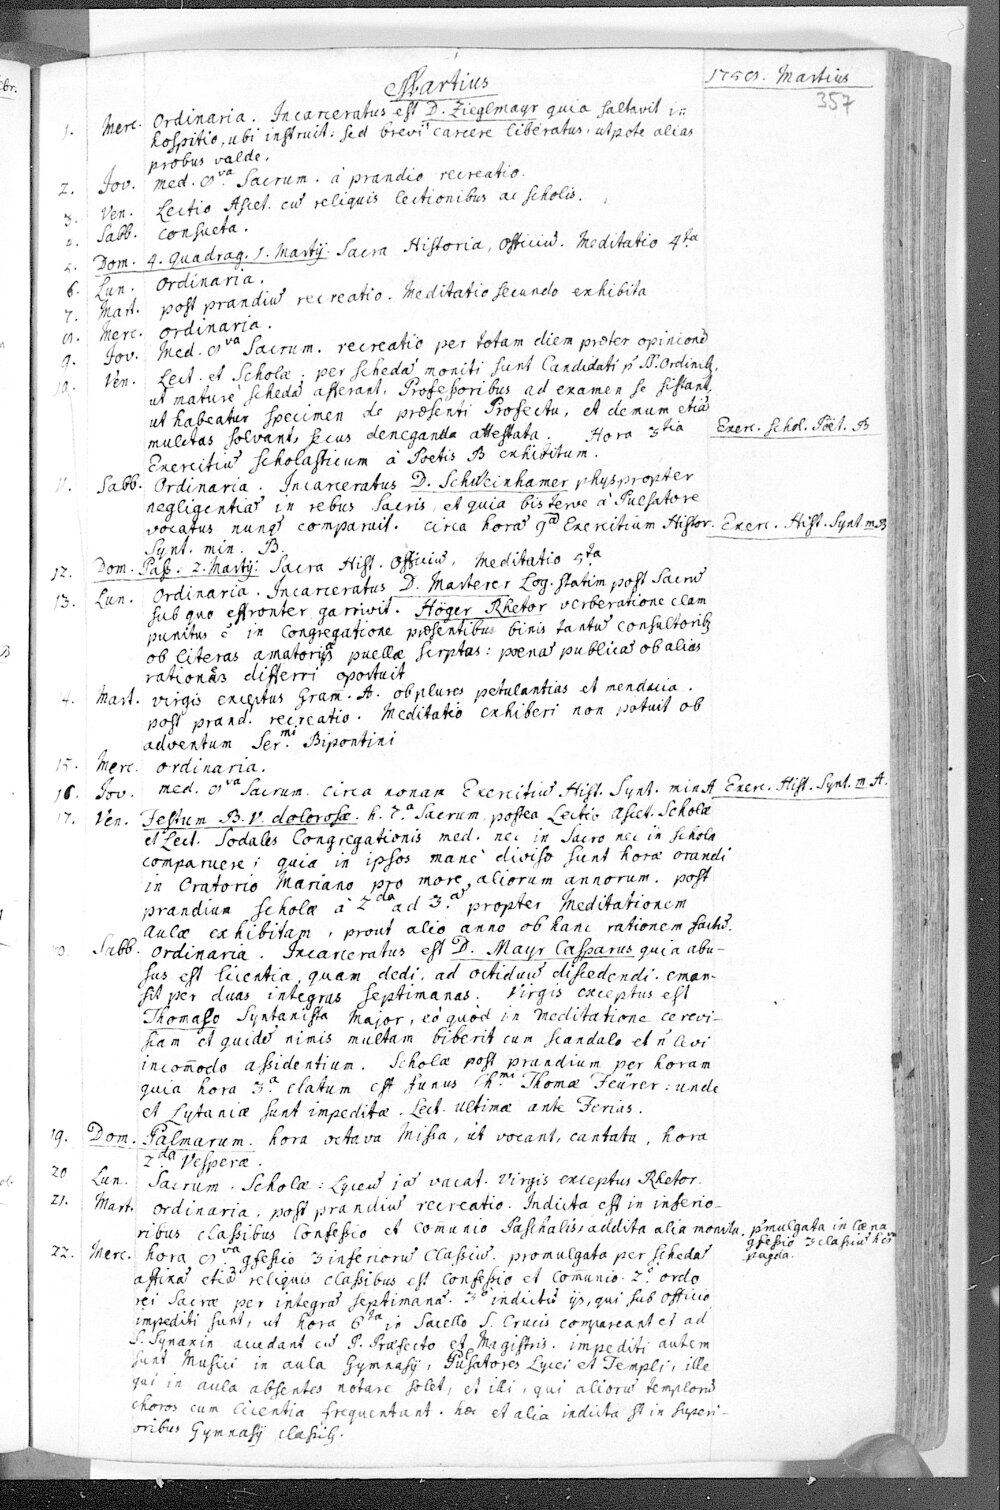 Martius
1750. Martius
357
1. Merc. Ordinaria. Incarceratus est D. Zieglmayr quia saltavit in
hospitio, ubi instruit: sed brevi carcere liberatus, utpote alias
probus valde.
2. Jov. med. 8va Sacrum. à prandio recreatio.
3. Ven. Lectio Ascet. cū reliquis lectionibus ac scholis.
4. Sabb. consueta.
5. Dom. 4. Quadrag. 1. Martij. Sacra Historia, officiū. Meditatio 4ta
6. Lun. Ordinaria.
7. Mart. post prandiū recreatio. Meditatio secundo exhibita
8. Merc. ordinaria.
9. Jov. Med. 8va Sacrum. recreatio per totam diem præter opinionē
10. Ven. Lect. et Scholæ. per schedā moniti sunt Candidati
ut mature schedā afferant, Professoribus ad examen se sistant,
ut habeatur specimen de præsenti Profectu, et demum etiā
mulctas solvant, secus deneganda attestata. Hora 3tia
Exerc. Schol. Poët. B
Exercitiū scholasticum à Poetis B exhibitum.
11. Sabb. Ordinaria. Incarceratus D. Schweinhamer phys propter
negligentiā in rebus Sacris, et quia bis terve à Pulsatore
vocatus nunq comparuit. circa horā 9 Exercitium Histor.
Exerc. Hist. Synt. m B
Synt. min. B.
12. Dom. Pass. 2. Martij. Sacra Hist. Officiū, Meditatio 5ta
13. Lun. Ordinaria. Incarceratus D. Masterer Log. statim post Sacrū
sub quo effronter garrivit. Höger Rhetor verberatione clam
punitus ē in Congregatione præsentibus binis tantū consultorib9
ob literas amatorias puellæ scriptas: poena publica ob alias
rationes differri oportuit
4. Mart. virgis exceptus Gram. A. ob plures petulantias et mendacia.
post prand. recreatio. Meditatio exhiberi non potuit ob
adventum Ser.mi Bipontini
15. Merc. ordinaria.
16. Jov. med. 8va Sacrum. circa nonam Exercitiū Hist. Synt. min A
Exerc. Hist. Synt. m A.
17. Ven. Festum B. V. dolorosæ. h. 7.a Sacrum, postea Lectio Ascet. Scholæ
et Lect. Sodales Congregationis med. nec in Sacro nec in schola
comparuere; quia in ipsos manè divisæ sunt horæ orandi
in Oratorio Mariano pro more aliorum annorum. post
prandium scholæ à 2da ad 3.a propter Meditationem
aulæ exhibitam, prout alio anno ob hanc rationem factū.
Sabb. Ordinaria. Incarceratus est D. Mayr Casparus quia abu-
sus est licentia, quam dedi, ad octiduū discedendi. eman-
sit per duas integras septimanas. Virgis exceptus est
Thomaso Syntaxista Major, eò quòd in Meditatione cerevi-
siam et quidē nimis multam biberit cum scandalo et ñ levi
incom̄odo assidentium. Scholæ post prandium per horam
quia hora 3.a elatum est funus Thomæ Feürer: unde
et Lytaniæ sunt impeditæ. Lect. ultimæ ante Ferias.
19. Dom. Palmarum. hora octava Missa, ut vocant, cantata, hora
2da Vesperæ.
20 Lun. Sacrum. Scholæ: Lyceū jā vacat. Virgis exceptus Rhetor.
21. Mart. ordinaria, post prandiū recreatio. Indicta est in inferio-
ribus classibus Confessio et comunio Paschalis addita alia monita.
promulgata in cæna
gfessio 3 classiū
pagda.
22. Merc. hora 8va gfessio 3 inferiorū Classiū. promulgata per schedā
affixā etiā reliquis classibus est Confessio et Comunio. 2.o ordo
rei Sacræ per integrā septimanā. 3.o indictū ijs, qui sub officio
impediti sunt, ut hora 6ta in Sacello S. Crucis compareant et ad
S. Synaxin accedant cū P. Præfecto et Magistris. impediti autem
sunt Musici in aula Gymnasij, Pulsatores Lycei et Templi, ille
qui in aula absentes notare solet, et illi, qui aliorū templorū
choros cum licentia frequentant. hæc et alia indicta st in superi-
oribus Gymnasij classib9.